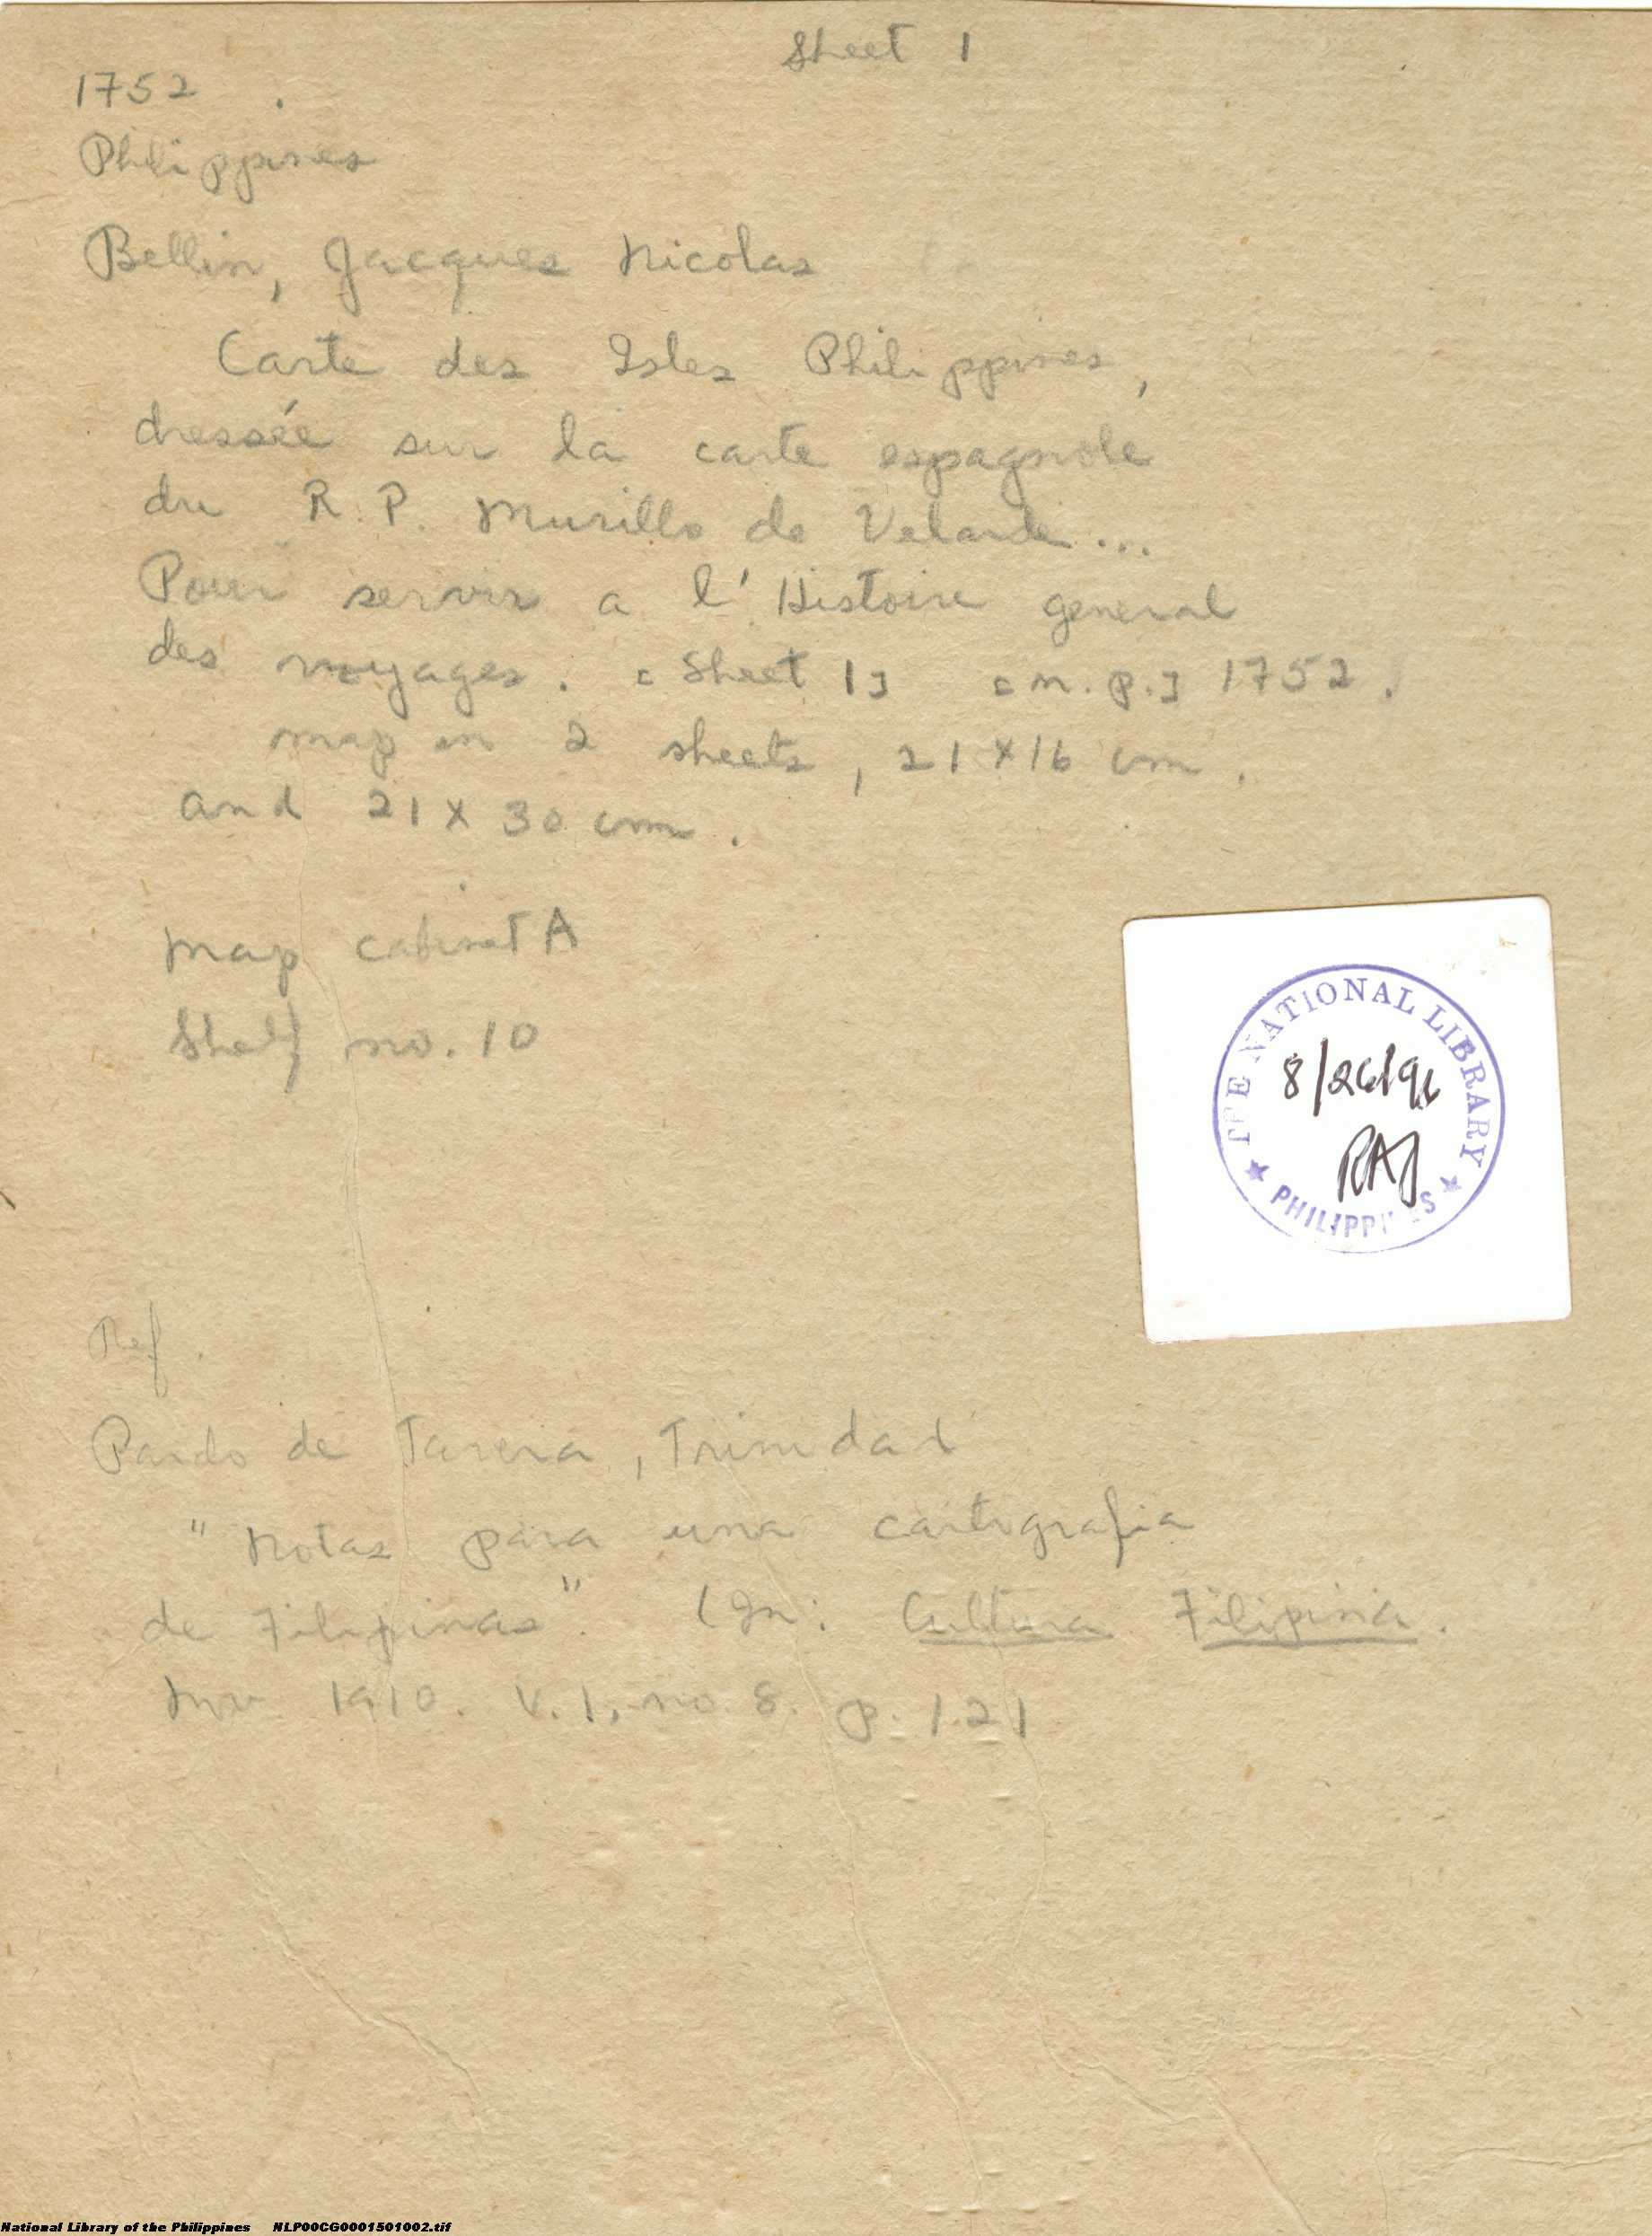 Sheet 1
1752
Philippines
Bellin, Jacques Nicolas
Carte des Isles Philippines,
dressée sur la carte espagnole
du R. P. Murillo de Velarde...
Pour servir a l'Histoire general
des voyages. [Sheet 1] [n.p.] 1752.
map in 2 sheets, 21 x 16 cm.
and 21 x 30 cm.
Map cabinet A
Shelf no. 10
THE NATIONAL LIBRARY
8/26/96
PHILIPPINES
Ref.
Pardo de Tavera, Trinidad
"Notas para una cartografia
de Filipinas". (In: Cultura Filipina.
Nov 1910. V.1, no 8. p. 121
National Library of the Philippines NLP00CG0001501002.tif